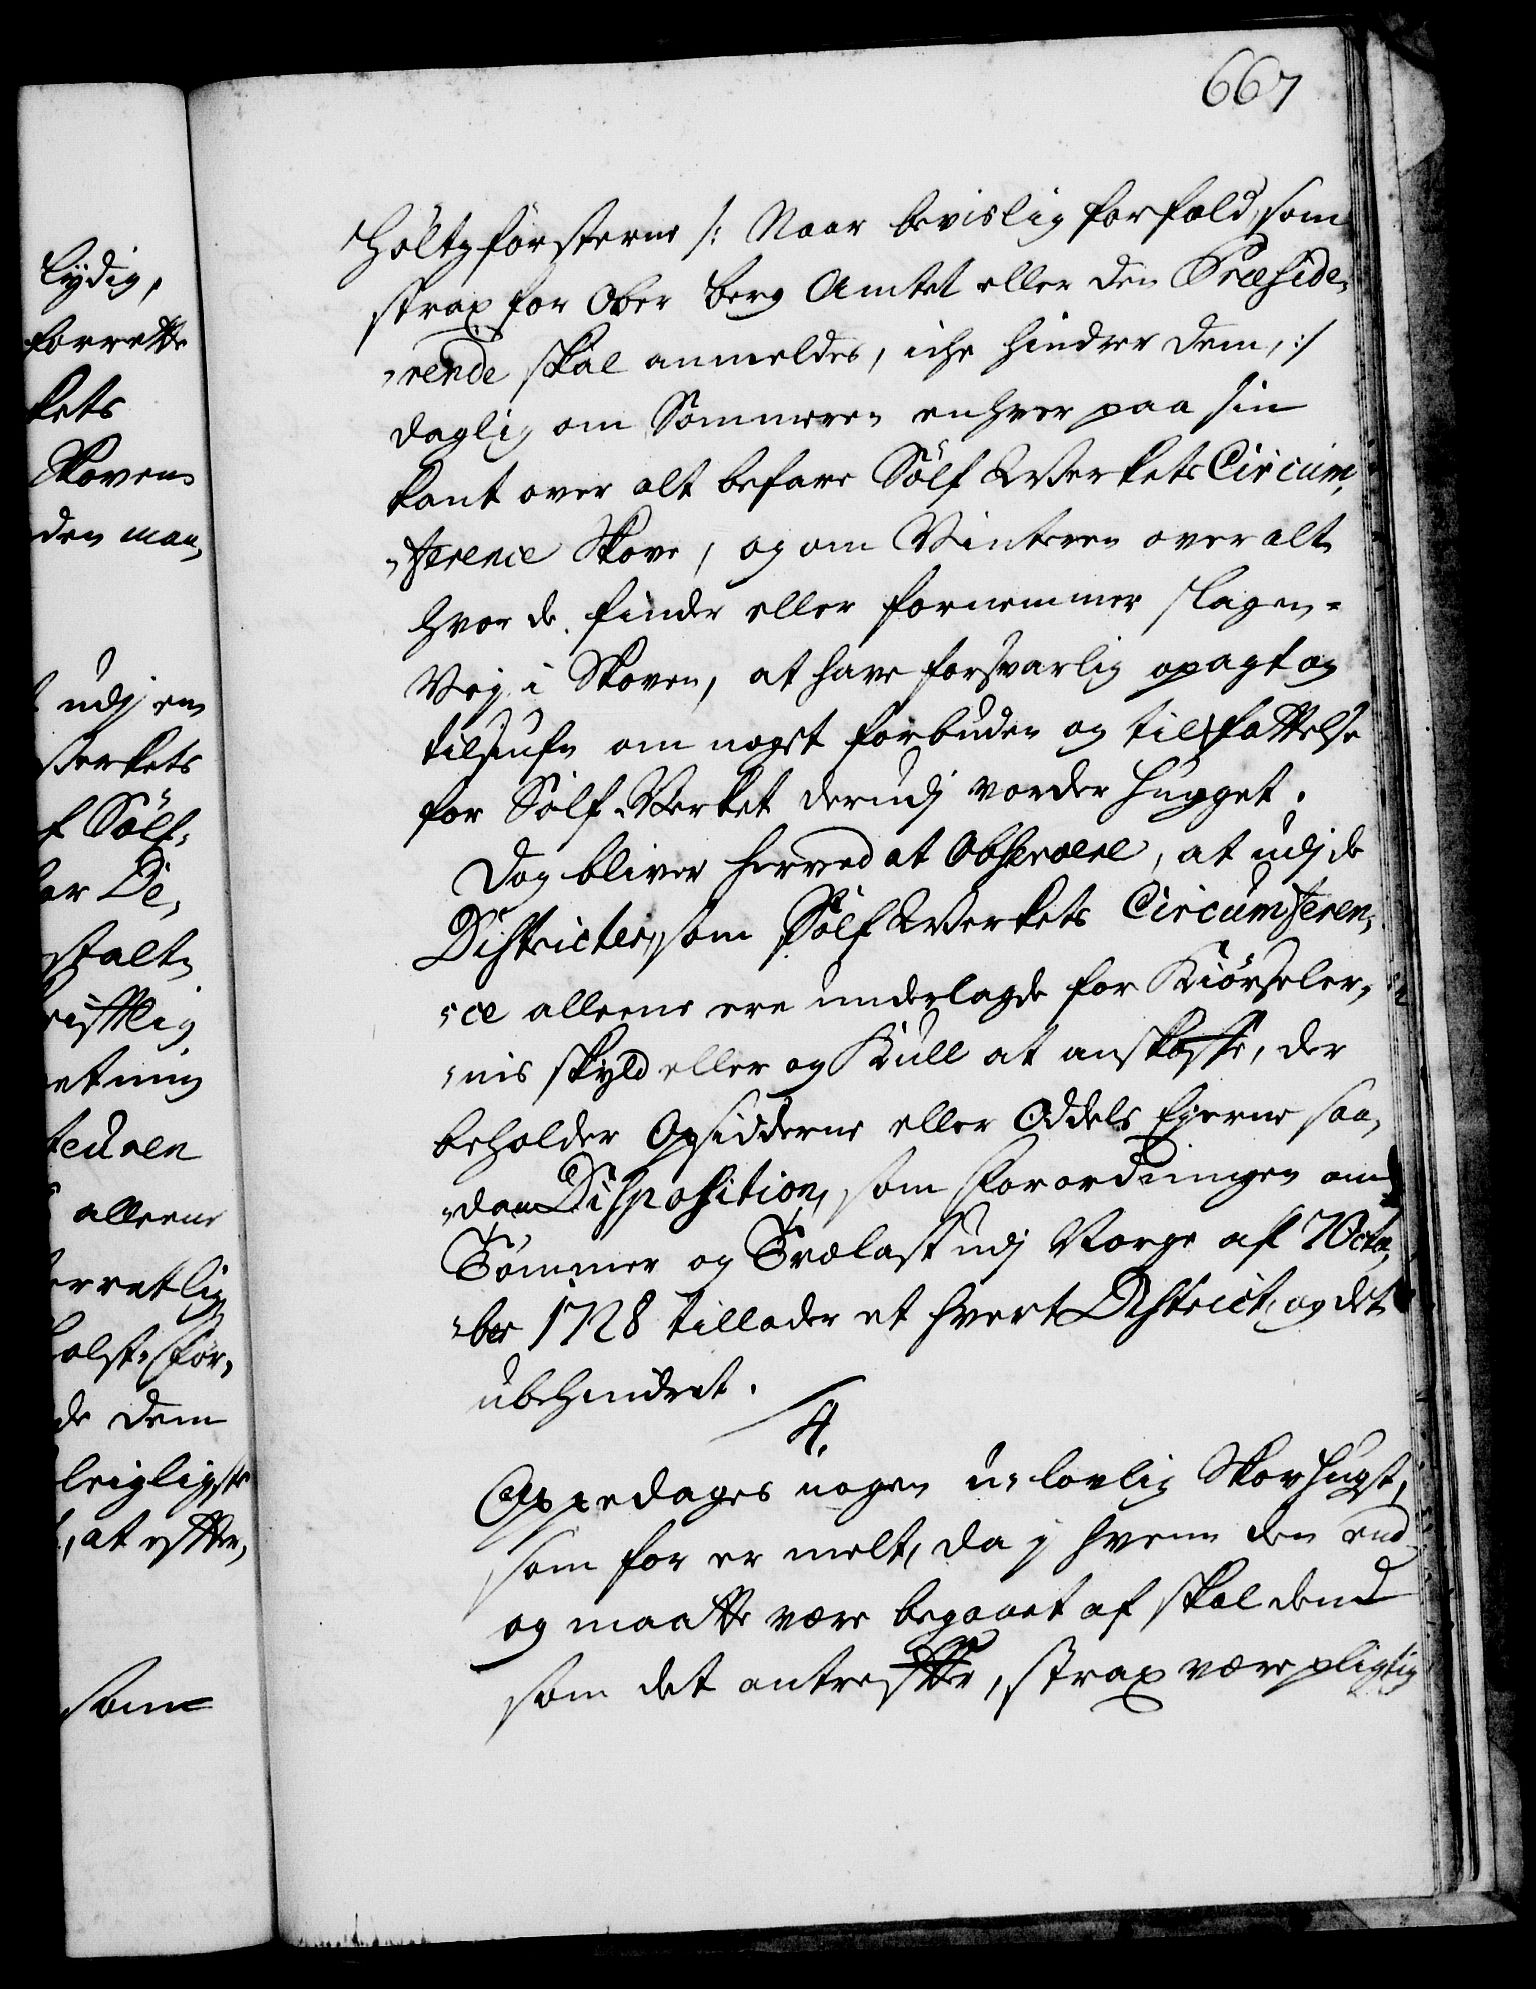 667
Holtzførsterne /: Naar bevislig forfald, som
strax for Ober Berg Amtet eller den Præside„
„rende skal anmeldes, iche hindrer dem, :/
daglig om Sommeren enhver paa sin
kant over alt befare Sølf Werkets Circum„
„ference Skove, og om Vinteren over alt
hvor de finder eller fornemmer slagen
Vej i Skoven, at have forsvarlig opagt og
tilsiufn om noget forbuden og til skattelse
for Sølf-Verket derudj vorder hugget.
Dog bliver herved at Observere, at udj de
Districter, som Sølf Werkets Circumferen„
„ce alleene ere underlagde for Kiørseler„
„nis skyld eller og Kull at anskaffe, der
beholder Opsidderne eller Oddels Ejerne saa„
„dan Disposition, som Forordningen om
Tømmer og Trælast udj Norge af 7 Octo„
„ber 1728 tillader et hvert District, og det
ubehindret.
4.
Oppedages nogen u-lovlig Skovhugst,
som før er melt, da j hvem den end
og maatte være begaaet af skal dend
som det antreffer, strax være pligtig
lydig,
forrette
kets
Skoven
den man„
udj en
Verkets
f Sølf„
or De„
stalt
rifftlig
etning
teuren
alleene
erretlig
holst-før„
de dem
leigligste
, at effter„
som